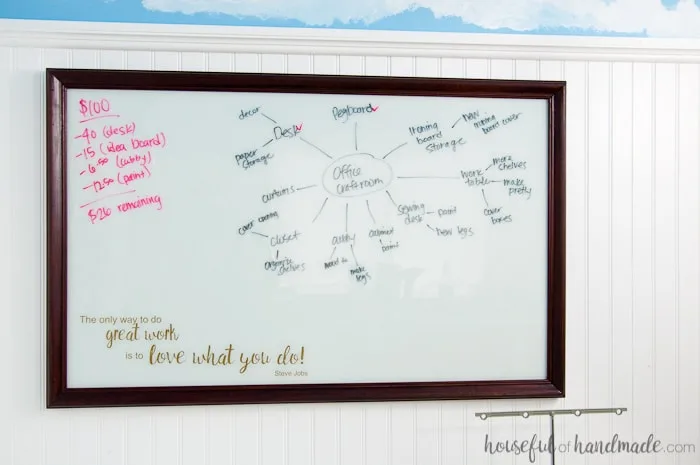 $100
-40 (desk)
-15 (idea board)
-6.50 (cubby)
-12.50 (paint)
$26 remaining
decor
Desk
paper
storage
Pegboard
Ironing
board
storage
new
ironing
board cover
Office
craftroom
work
table
more
shelves
make
pretty
cover
boxes
curtains
closet
organize
shelves
cubby
make
legs
cabinet
paint
sewing
desk
paint
new legs
The only way to do
great work
is to love what you do!
Steve Jobs
houseful of handmade.com